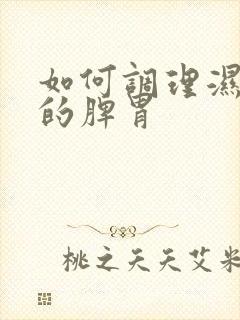 如何調理濕
的脾胃
桃之夭夭艾米